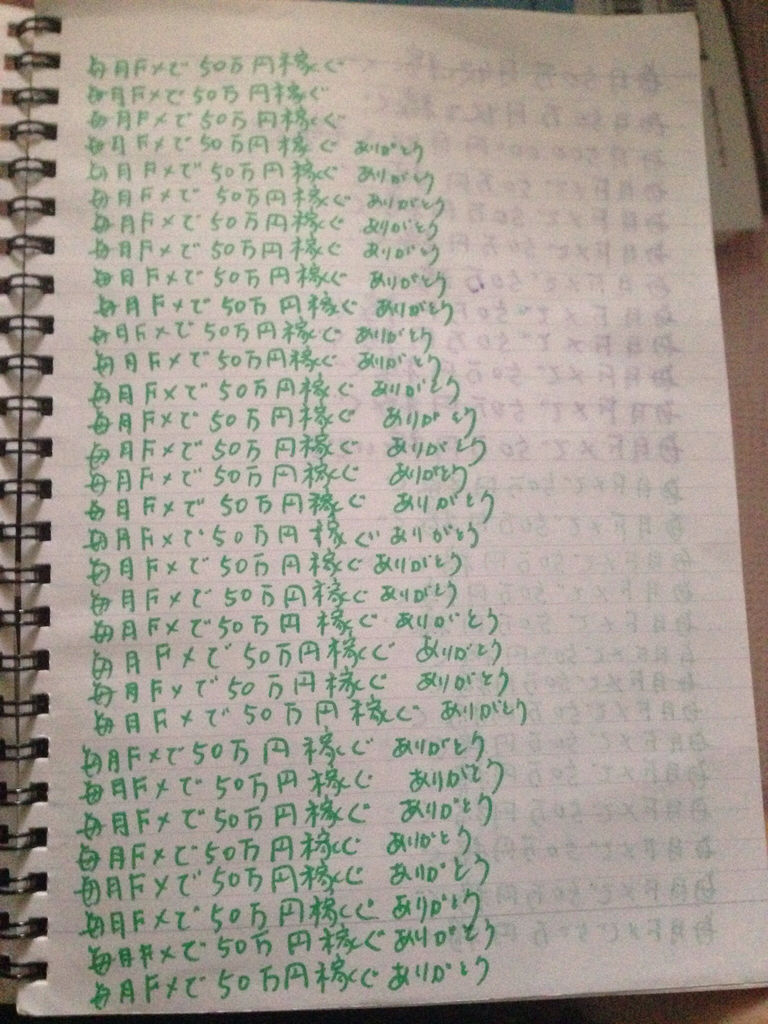 毎月FXで50万円稼ぐ
毎月FXで50万円稼ぐ
毎月FXで50万円稼ぐ
毎月FXで50万円稼ぐ ありがとう
毎月FXで50万円稼ぐ ありがとう
毎月FXで50万円稼ぐ ありがとう
毎月FXで50万円稼ぐ ありがとう
毎月FXで50万円稼ぐ ありがとう
毎月FXで50万円稼ぐ ありがとう
毎月FXで50万円稼ぐ ありがとう
毎月FXで50万円稼ぐ ありがとう
毎月FXで50万円稼ぐ ありがとう
毎月FXで50万円稼ぐ ありがとう
毎月FXで50万円稼ぐ ありがとう
毎月FXで50万円稼ぐ ありがとう
毎月FXで50万円稼ぐ ありがとう
毎月FXで50万円稼ぐ ありがとう
毎月FXで50万円稼ぐ ありがとう
毎月FXで50万円稼ぐ ありがとう
毎月FXで50万円稼ぐ ありがとう
毎月FXで50万円稼ぐ ありがとう
毎月FXで50万円稼ぐ ありがとう
毎月FXで50万円稼ぐ ありがとう
毎月FXで50万円稼ぐ ありがとう
毎月FXで50万円稼ぐ ありがとう
毎月FXで50万円稼ぐ ありがとう
毎月FXで50万円稼ぐ ありがとう
毎月FXで50万円稼ぐ ありがとう
毎月FXで50万円稼ぐ ありがとう
毎月FXで50万円稼ぐ ありがとう
毎月FXで50万円稼ぐ ありがとう
毎月FXで50万円稼ぐ ありがとう